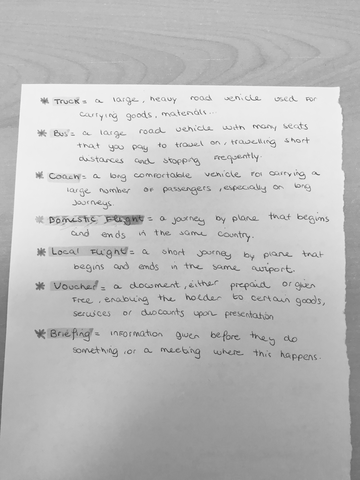 * Truck = a large, heavy road vehicle used for
carrying goods, materials...
* Bus = a large road vehicle with many seats
that you pay to travel on, travelling short
distances and stopping frequently.
* Coach = a long comfortable vehicle for carrying a
large number of passengers, especially on long
journeys
* Domestic Flight = a journey by plane that begins
and ends in the same country.
* Local Flight = a short journey by plane that
begins and ends in the same airport.
* Voucher = a document, either prepaid or given
free, enabling the holder to certain goods,
services or discounts upon presentation
* Briefing = information given before they do
something, or a meeting where this happens.